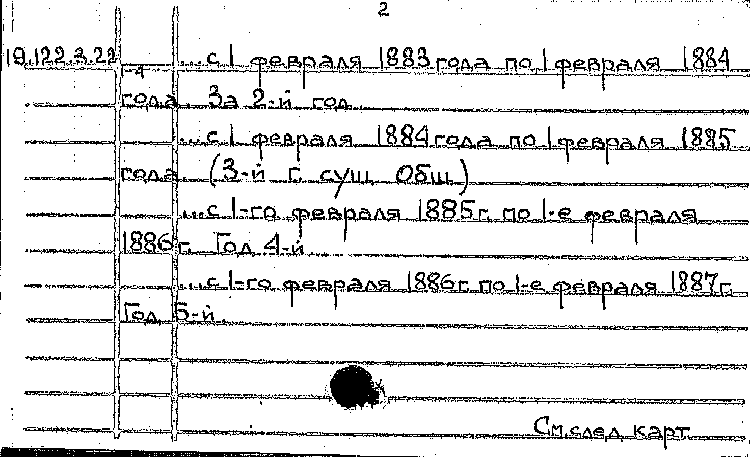 2
19.122.3.22 ...с 1 февраля 1883 года по 1 февраля 1884
-4
года. За 2-й год.
...с 1 февраля 1884 года по 1 февраля 1885
года. (3-й г. сущ. Общ.)
...с 1-го февраля 1885 г. по 1-е февраля
1886 г. Год 4-й
...с 1-го февраля 1886 г. по 1-е февраля 1887 г.
Год 5-й.
См. след. карт.